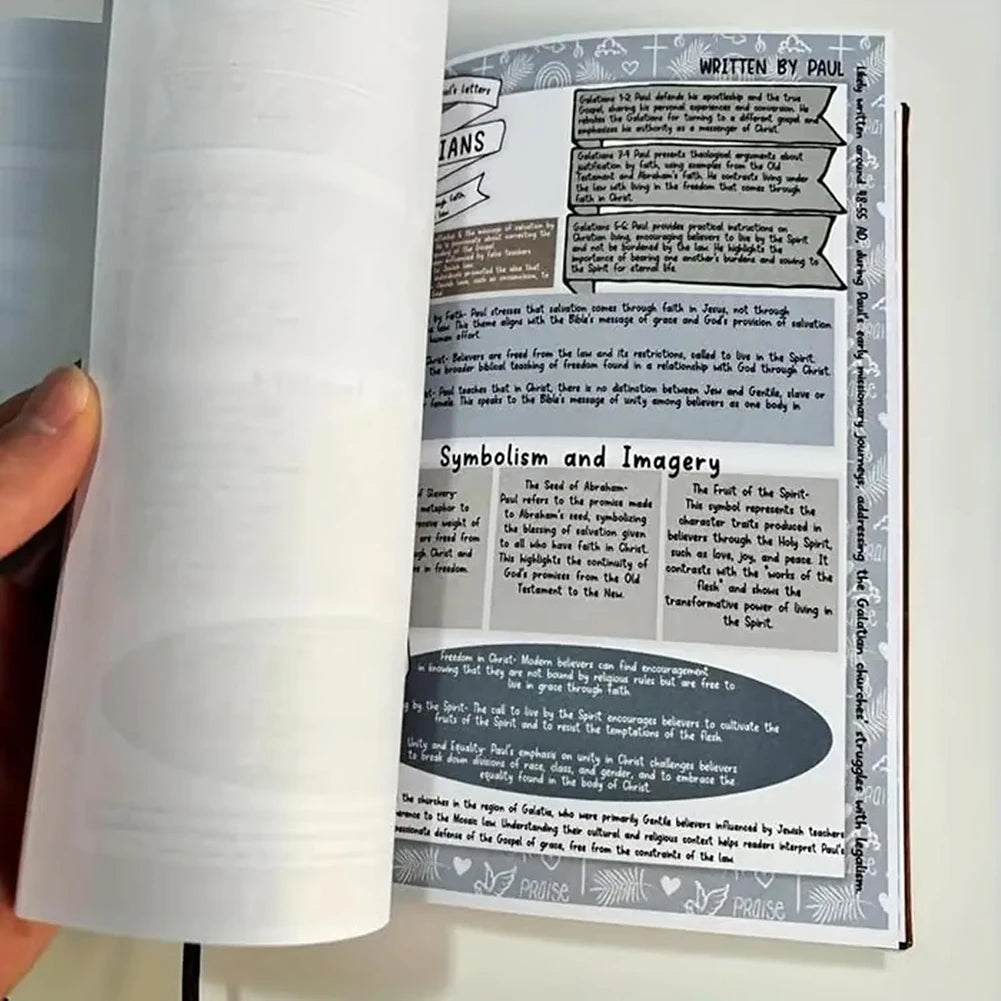 WRITTEN BY PAUL
Paul's letters
IANS
Galatians 1-2: Paul defends his apostleship and the true
Gospel, sharing his personal experiences and conversion. He
rebukes the Galatians for turning to a different gospel and
emphasizes his authority as a messenger of Christ.
Galatians 3-4: Paul presents theological arguments about
justification by faith, using examples from the Old
Testament and Abraham's faith. He contrasts living under
the law with living in the freedom that comes through
faith in Christ.
Galatians 5-6: Paul provides practical instructions on
Christian living, encouraging believers to live by the Spirit
and not be burdened by the law. He highlights the
importance of bearing one another's burdens and sowing to
the Spirit for eternal life.
the message of salvation by
is passionate about correcting the
of the Gospel
by false teachers
Jewish law.
promoted the idea that
law, such as circumcision, to
by Faith- Paul stresses that salvation comes through faith in Jesus, not through
law. This theme aligns with the Bible's message of grace and God's provision of salvation
human effort.
Christ- Believers are freed from the law and its restrictions, called to live in the Spirit.
the broader biblical teaching of freedom found in a relationship with God through Christ.
Paul teaches that in Christ, there is no distinction between Jew and Gentile, slave or
female. This speaks to the Bible's message of unity among believers as one body in
Symbolism and Imagery
of Slavery-
metaphor to
weight of
are freed from
Christ and
in freedom.
The Seed of Abraham-
Paul refers to the promise made
to Abraham's seed, symbolizing
the blessing of salvation given
to all who have faith in Christ.
This highlights the continuity of
God's promises from the Old
Testament to the New.
The Fruit of the Spirit-
This symbol represents the
character traits produced in
believers through the Holy Spirit,
such as love, joy, and peace. It
contrasts with the "works of the
flesh" and shows the
transformative power of living in
the Spirit.
Freedom in Christ- Modern believers can find encouragement
in knowing that they are not bound by religious rules but are free to
live in grace through faith.
by the Spirit- The call to live by the Spirit encourages believers to cultivate the
fruits of the Spirit and to resist the temptations of the flesh.
Unity and Equality- Paul's emphasis on unity in Christ challenges believers
to break down divisions of race, class, and gender, and to embrace the
equality found in the body of Christ.
the churches in the region of Galatia, who were primarily Gentile believers influenced by Jewish teachers
to the Mosaic law. Understanding their cultural and religious context helps readers interpret Paul's
passionate defense of the Gospel of grace, free from the constraints of the law.
Likely written around 48-55 AD, during Paul's early missionary journeys, addressing the Galatian churches' struggles with legalism.
PRAISE
PRAISE